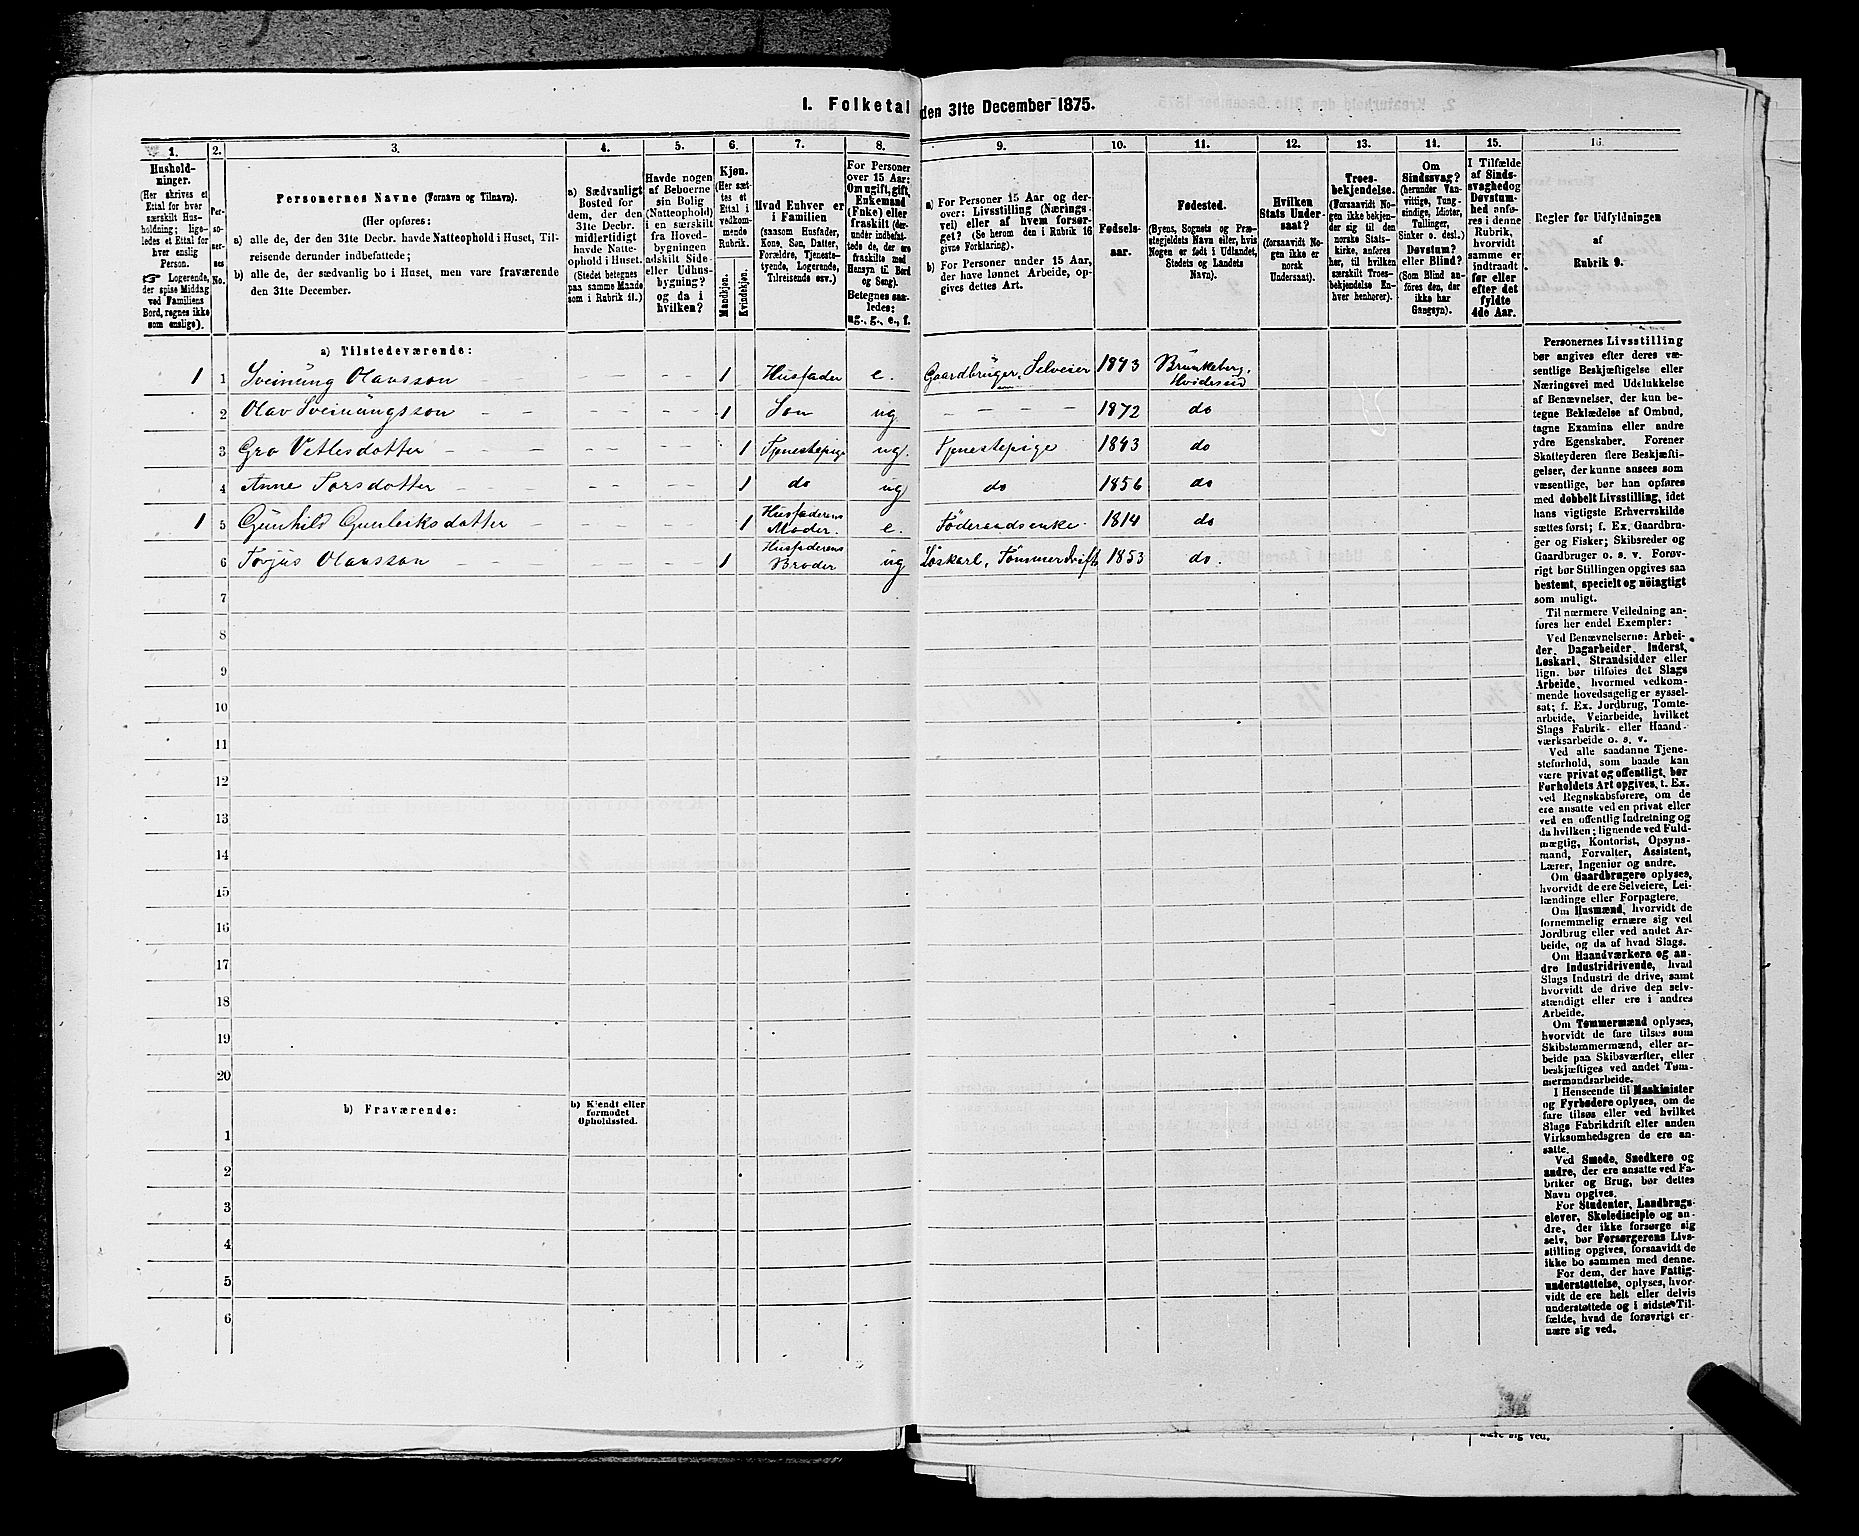 I. Folketal den 31te December 1875.
1. 2. 3. 4. 5. 6. 7. 8. 9. 10. 11. 12. 13. 14. 15. 16.
Hushold-
ninger.
(Her skrives et
Ettal for hver
særskilt Hus-
holdning; lige-
ledes et Ettal for
hver enslig
Person.
☞ Logerende,
der spise Middag
ved Familiens
Bord, regnes ikke
som enslige).
Per-
so-
ner-
nes
No.
Personernes Navne (Fornavn og Tilnavn).
(Her opføres:
a) alle de, der den 31te Decbr. havde Natteophold i Huset, Til-
reisende derunder indbefattede;
b) alle de, der sædvanlig bo i Huset, men vare fraværende
den 31te December.
a) Sædvanligt
Bosted for
dem, der den
31te Decbr.
midlertidigt
havde Natte-
ophold i Huset.
(Stedet betegnes
paa samme Maade
som i Rubrik 11.)
Havde nogen
af Beboerne
sin Bolig
(Natteophold)
i en særskilt
fra Hoved-
bygningen
adskilt Side-
eller Udhus-
bygning?
og da i
hvilken?
Kjøn.
(Her sæt-
tes et
Ettal i
vedkom-
mende
Rubrik.
Mandkjøn.
Kvindekjøn.
Hvad Enhver er
i Familien
(saasom Husfader,
Kone, Søn, Datter,
Forældre, Tjeneste-
tyende, Logerende,
Tilreisende osv.)
For Personer
over 15 Aar:
Om ugift, gift,
Enkemand
(Enke) eller
fraskilt (der-
under indbefat-
tede de, der ere
fraskilte med
Hensyn til Bord
og Seng).
Betegnes saa-
ledes:
ug., g., e., f.
a) For Personer 15 Aar og der-
over: Livsstilling (Nærings-
vei) eller af hvem forsør-
get? (Se herom den i Rubrik 16
givne Forklaring).
b) For Personer under 15 Aar,
der have lønnet Arbeide, op-
gives dettes Art.
Fødsels-
aar.
Fødested.
(Byens, Sognets og Præ-
stegjeldets Navn eller, hvis
Nogen er født i Udlandet,
Stedets og Landets
Navn).
Hvilken
Stats Under-
saat?
(forsaavidt No-
gen ikke er
norsk
Undersaat).
Troes-
bekjendelse.
(Forsaavidt No-
gen ikke bekjen-
der sig til den
norske Stats-
kirke, anføres
her, til hvilken
særskilt Troes-
bekjendelse En-
hver henhører).
Om
Sindssvag?
(herunder Van-
vittige, Tung-
sindige, Idioter,
Tullinger,
Sinker o. desl.)
Døvstum?
eller Blind?
(Som Blind an-
føres den, der
ikke har
Gangsyn).
I Tilfælde
af Sinds-
svaghed og
Døvstum-
hed anfø-
res i denne
Rubrik,
hvorvidt
samme er
indtraadt
før eller
efter det
fyldte
4de Aar.
Regler for Udfyldningen
af
Rubrik 9.
a) Tilstedeværende:
1 1 Sveinung Olavsson 1 Husfader e. Gaardbruger, Selveier 1843 Brunkeberg, Hvideseid
2 Olav Sveinungsson 1 Søn ug. 1872 do
3 Gro Vetlesdotter 1 Tjenestepige ug. Tjenestepige 1843 do
4 Anne Torsdotter 1 do ug do 1856 do
1 5 Gunhild Gunleiksdotter 1 Husfaderens Moder. e. Føderaadsenke 1814 do
6 Torjus Olavsson 1 Husfaderens Broder ug Løskarl, Tømmerdrift 1853 do.
7
8
9
10
11
12
13
14
15
16
17
18
19
20
b) Fraværende:
b) Kjendt eller
formodet
Opholdssted.
1
2
3
4
5
6
Personernes Livsstilling
bør angives efter deres væ-
sentlige Beskjæftigelse eller
Næringsvei med Udelukkelse
af Benævnelser, der kun be-
tegne Beklædelse af Ombud,
tagne Examina eller andre
ydre Egenskaber. Forener
Skatteyderen flere Beskjæfti-
gelser, der kunne ansees som
væsentlige, bør han opføres
med dobbelt Livsstilling, idet
hans vigtigste Erhvervskilde
sættes først; f. Ex. Gaardbru-
ger og Fisker; Skibsreder og
Gaardbruger o. s. v. Forøv-
rigt bør Stillingen opgives saa
bestemt, specielt og nøiagtigt
som muligt.
Til nærmere Veiledning an-
føres her endel Exempler:
Ved Benævnelserne: Arbei-
der, Dagarbeider, Inderst,
Løskarl, Strandsidder eller
lign. bør tilføies det Slags
Arbeide, hvormed vedkom-
mende hovedsagelig er syssel-
sat; f. Ex. Jordbrug, Tomte-
arbeide, Veiarbeide, hvilket
Slags Fabrik- eller Haand-
værksarbeide o. s. v.
Ved alle saadanne Tjene-
steforhold, som baade kan
være privat og offentligt, bør
Forholdets Art opgives, t. Ex.
ved Regnskabsførere, om de
ere ansatte ved en privat eller
ved en offentlig Indretning og
da hvilken; lignende ved Fuld-
mægtig, Kontorist, Opsyns-
mand, Forvalter, Assistent,
Lærer, Ingeniør og andre.
Om Gaardbrugere oplyses,
hvorvidt de ere Selveiere, Lei-
lændinge eller Forpagtere.
Om Husmænd, hvorvidt de
fornemmelig ernære sig ved
Jordbrug eller ved andet Ar-
beide, og da af hvad Slags.
Om Haandværkere og an-
dre Industridrivende, hvad
Slags Industri de drive, samt
hvorvidt de drive den selv-
stændigt eller ere i andres
Arbeide.
Om Tømmermænd oplyses,
hvorvidt de fare tilsøs som
Skibstømmermænd, eller ar-
beide paa Skibsværfter, eller
beskjæftiges ved andet Tøm-
mermandsarbeide.
I Henseende til Maskinister
og Fyrbødere oplyses, om de
fare tilsøs eller ved hvilket
Slags Fabrikdrift eller anden
Virksomhedsgren de ere an-
satte.
Ved Smede, Snedkere og
andre, der ere ansatte ved Fa-
briker og Brug, bør dettes
Navn opgives.
For Studenter, Landbrugs-
elever, Skoledisciple og an-
dre, der ikke forsørge sig
selv, bør Forsørgerens Livs-
stilling opgives, forsaavidt de
ikke bo sammen med denne.
For dem, der have Fattig-
understøttelse, oplyses, hvor-
vidt de ere helt eller delvis
understøttede og i sidste Til-
fælde, hvad de forøvrigt er-
nære sig ved.
nære sig ved.